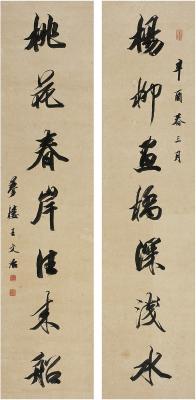 楊柳畫橋深淺水
辛酉春三月
桃花春岸往来船
夢樓王文治